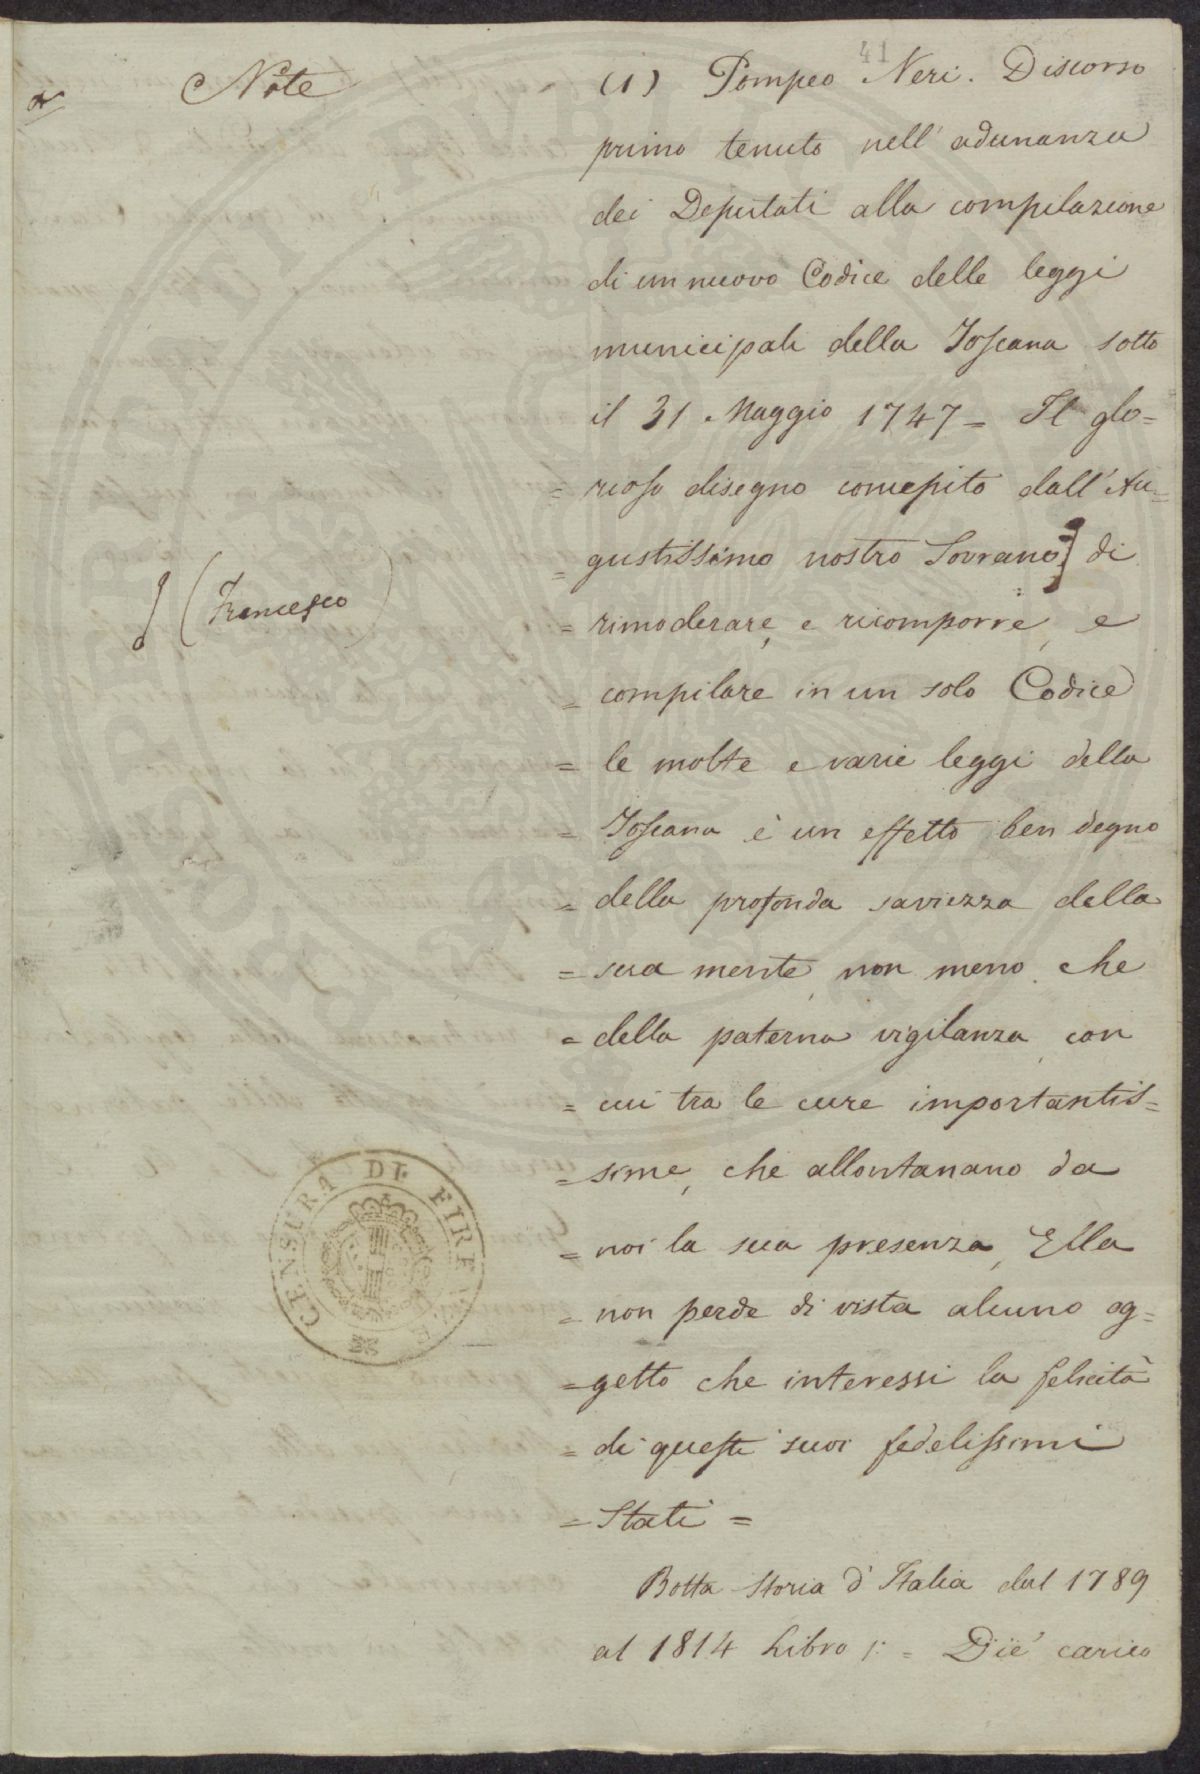 41
Note
(1) Pompeo Neri. Discorso
primo tenuto nell'adunanza
dei Deputati alla compilazione
di un nuovo Codice delle leggi
municipali della Toscana sotto
il 31 Maggio 1747 = Il glo=
= rioso disegno concepito dall'Au=
= gustissimo nostro Sovrano] di
(Francesco)
= rimoderare, e ricomporre, e
= compilare in un solo Codice
= le molte e varie leggi della
= Toscana è un effetto ben degno
= della profonda saviezza della
= sua mente, non meno che
= della paterna vigilanza, con
= cui tra le cure importantis=
= sime, che allontanano da
= noi la sua presenza, Ella
= non perde di vista alcuno og=
= getto che interessi la felicità
= di questi suoi fedelissimi
= Stati =
Botta Storia d'Italia dal 1789
al 1814 Libro 1: = Diè carico
CENSURA DI FIRENZE